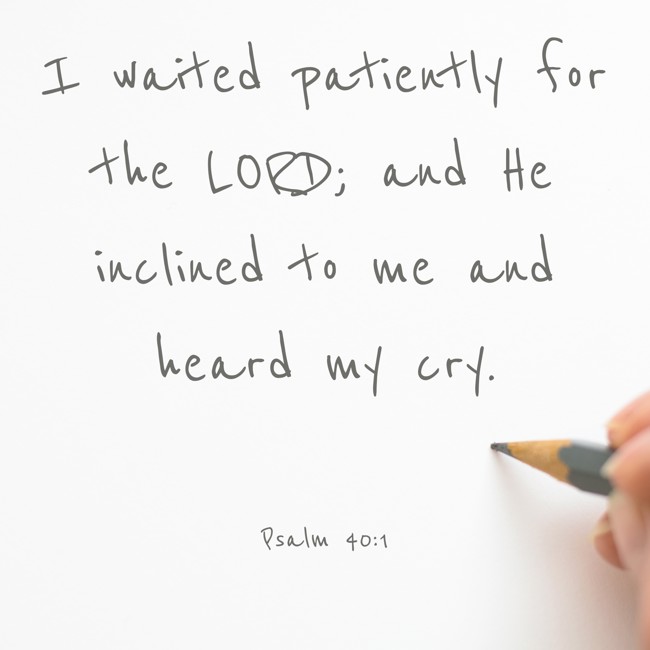 I waited patiently for
the LORD; and He
inclined to me and
heard my cry.
Psalm 40:1